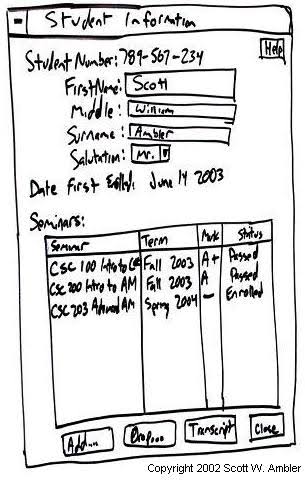 Student Information
Help
Student Number: 789-567-234
First Name: Scott
Middle: William
Surname: Ambler
Salutation: Mr.
Date First Enrolled: June 14 2003
Seminars:
Seminar Term Mark Status
CSC 100 Intro to CS Fall 2003 A+ Passed
CSC 200 Intro to AM Fall 2003 A Passed
CSC 203 Advanced AM Spring 2004 - Enrolled
Add... Drop... Transcript Close
Copyright 2002 Scott W. Ambler